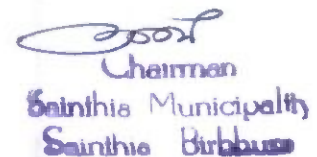 Chairman
Sainthia Municipality
Sainthia Birbhum